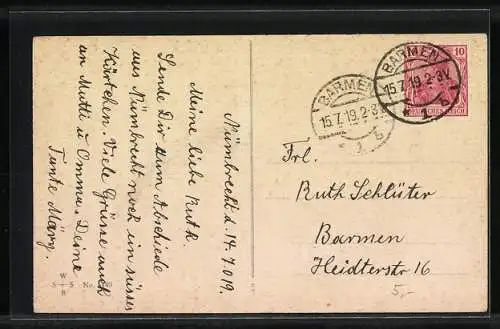 Nümbrecht d. 14.7.019.
Meine liebe Ruth.
Sende Dir zum Abschiede
aus Nümbrecht noch ein süsses
Kärtchen. Viele Grüsse auch
an Mutti u Omma. Deine
Tante Mary.
BARMEN
15.7.19.2-3V
* 1 b
BARMEN
15.7.19.2-3V
* 1 b
10
Frl.
Ruth Schlüter
Barmen
Heidterstr 16
5,-
W
S + S No.
B